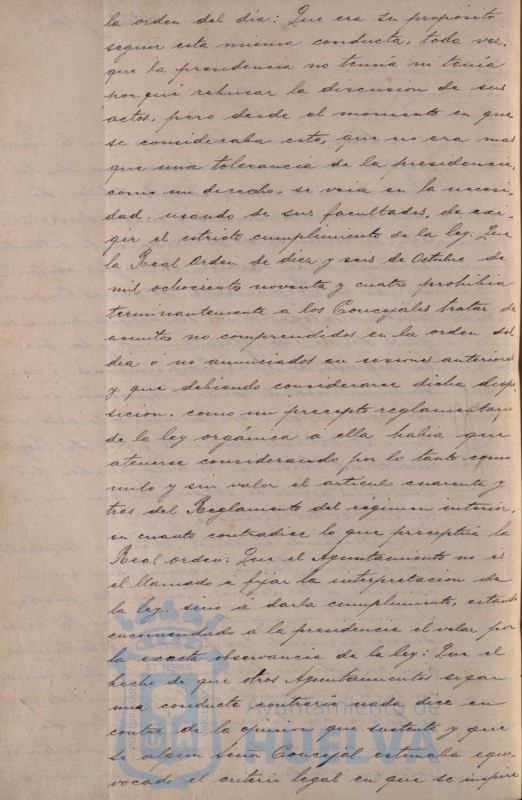 la orden del dia: Que era su propósito
seguir esta misma conducta, toda vez,
que la presidencia no tenia ni tenía
por qué rehusar la discusion de sus
actos, pero desde el momento en que
se consideraba esto, que no era mas
que una tolerancia de la presidencia,
como un derecho, se veia en la necesi-
dad, usando de sus facultades, de exi-
gir el estricto cumplimiento de la ley: Que
la Real Orden de diez y seis de Octubre de
mil ochocientos noventa y cuatro prohibia
terminantemente á los Concejales tratar de
asuntos no comprendidos en la orden del
dia ó no anunciados en sesiones anteriores
y que debiendo considerarse dicha dispo-
sicion, como un precepto reglamentario
de la ley orgánica á ella habia que
atenerse considerando por lo tanto como
nulo y sin valor el artículo cuarenta y
tres del Reglamento del régimen interior,
en cuanto contradice lo que preceptúa la
Real orden: Que el Ayuntamiento no es
el llamado á fijar la interpretacion de
la ley, sino á darla cumplimiento, estando
encomendado á la presidencia el velar por
la exacta observancia de la ley: Que el
hecho de que otros Ayuntamientos sigan
una conducta contraria nada dice en
contra de la opinion que sustenta y que
si algun Señor Concejal estimaba equi-
vocado el criterio legal en que se inspira
Ayuntamiento de
HUELVA